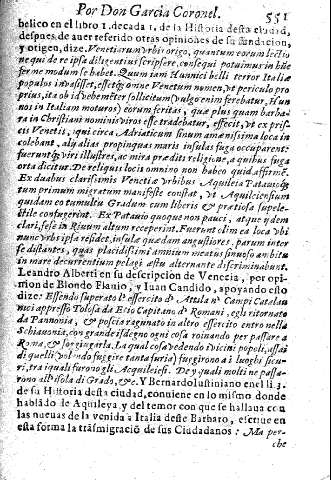 Por Don Garcia Coronel. 551
belico en el libro 1. decada 1. de la Historia desta ciudad,
despues de auer referido otras opiniones de su fundacion,
y origen, dize. Venetiarum vrbi origo, quantum eorum lectio
ne qui de re ipsa diligentius scripsere, consequi potuimus in hũc
fer me modum se habet. Quum iam Hunnici belli terror Italiæ
populos inuasisset, essetq́; omne Venetum nomen, vt periculo pro
prius, ita ob id vehemẽter sollicitum (vulgo enim ferebatur, Hun
nos in Italiam moturos) eorum feritas, quæ plus quam barba-
ra in Christiani nominis viros esse tradebatur, effecit, vt ex pris-
cis Venetis, qui circa Adriaticum sinum amænissima loca in
colebant, alij alias propinquas maris insulas fuga occuparent:
fuerunt q́; viri illustres, ac mira præditi religione, a quibus fuga
orta dicitur. De reliquis locis omnino non habeo quid affirmẽ.
Ex duabus clarissimis Venetiæ vrbibus Aquileia Patauioq́;
tum primum migratum manifeste constat, vt Aquileiensium
quidam eo tumultu Gradum cum liberis & prætiosa supele-
ctile confugerint. Ex Patauio quoque non pauci, atque ijdem
clari, sese in Riuum altum receperint. Fuerunt olim ea loca vbi
nunc vrbs ipsa residet, insulæ quædam angustiores, parum inter
se distantes, quas placidissimi amnium meatus sinuoso ambitu
in mare decurrentium pelagi æstu alternante discriminabant.
Leandro Alberti en su descripcion de Venecia, por opi-
nion de Blondo Flauio, y Iuan Candido, apoyando esto
dize: Essendo superato l'essercito d' Attula n' Campi Catelau
nici appresso Tolosa da Etio Capitano d' Romani, egli ritornato
da Pannonia, & poscia ragunato in altro essercito entro nella
Schiauonia, con grande isdegno ogni cosa roinando per passare a
Roma, & soggiugarla. La qual cosa vedendo i vicini popoli, assai
di quelli volendo fuggire tanta furia) fuggirono a i luoghi sicu-
ri, tra i quali furono gli Acquileiesi. De y quali molti ne passa-
rono all'isola di Grado, &c. Y Bernardo Iustiniano en el li. 3.
de su Historia desta ciudad, conuiene en lo mismo donde
hablãdo de Aquileya, y del temor con que se hallaua con
las nueuas de la venida a Italia deste Barbaro, escriue en
esta forma la trãsmigraciõ de sus Ciudadanos: Ma per-
che